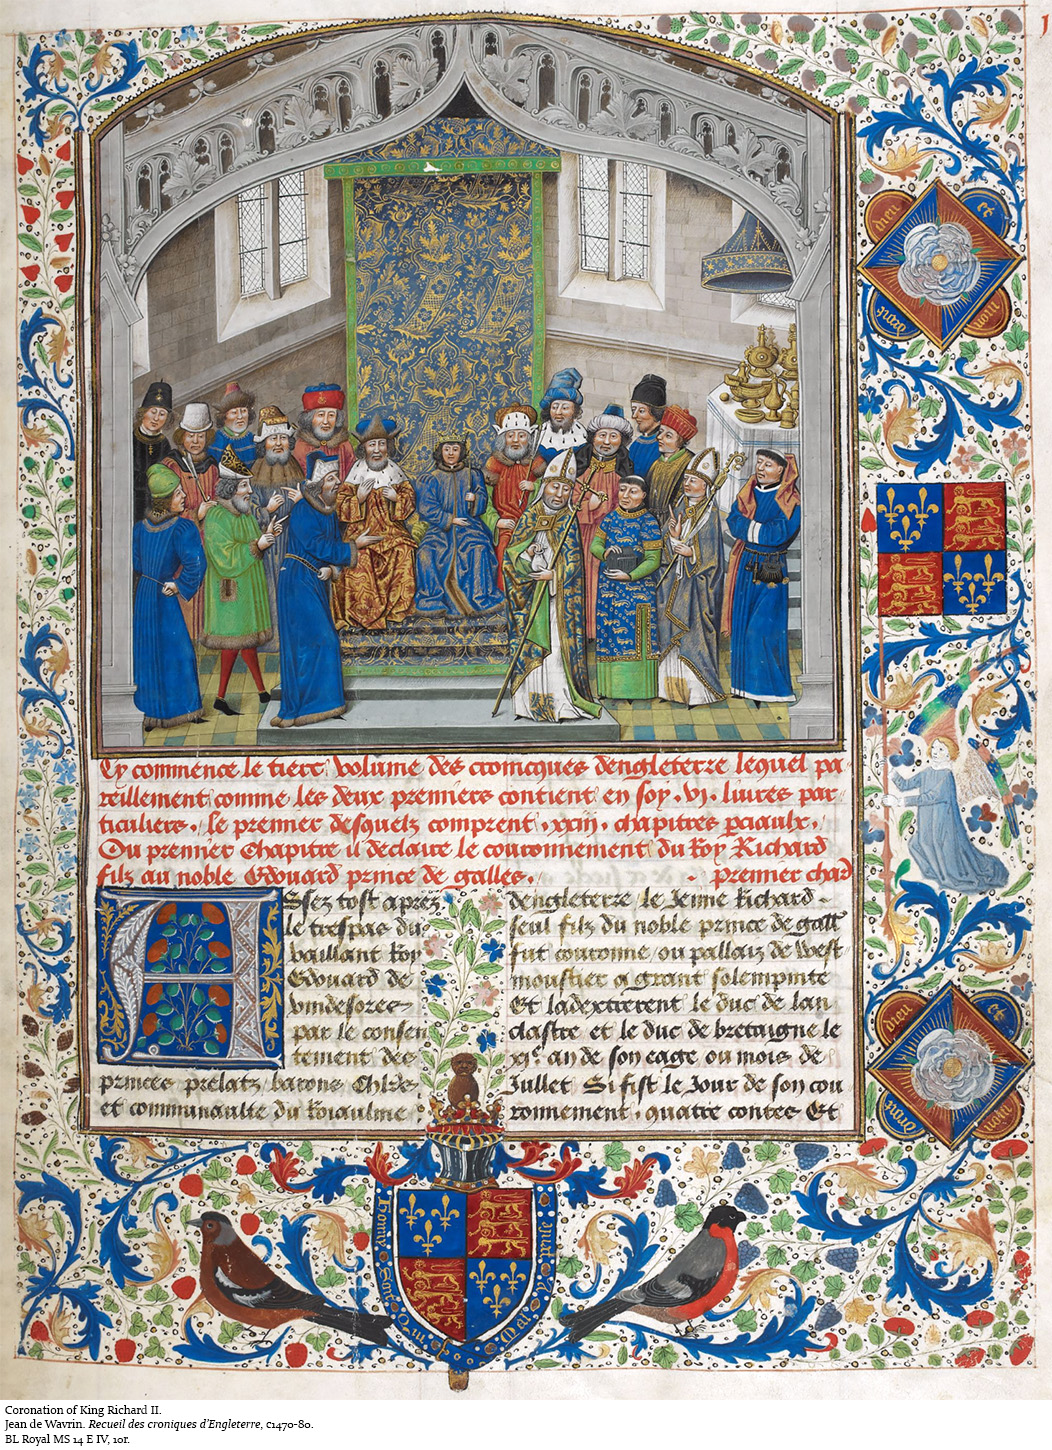 Cy commence le tierc volume des cronicques dengleterre lequel pa-
reillement comme les deux premiers contient en soy .vi. liures par-
ticuliers. le premier desquelz comprent .xxiii. chapitres pciaulx.
Ou premier Chapitre il declaire le couronnement du Roy Richard
filz au noble Edouard prince de galles. premier chap
Assez tost aprez
le trespas du
vaillant Roy
Edouard de
vindesores
par le consen
tement des
princes prelatz barons Chlrs
et communaulte du Roiaulme
dengleterre le Jenne Richard
seul filz du noble prince de gall
fut couronne ou pallaiz de west
moustier a grant solempnite
Et ladextrerent le duc de lan
clastre et le duc de bretaigne le
xie an de son eage ou mois de
Jullet Si fist le Jour de son cou
ronnement quatre contes Et
dieu et mon
dieu et mon
Honny Soit Qui Mal Y Pense
Coronation of King Richard II.
Jean de Wavrin. Recueil des croniques d'Engleterre, c1470-80.
BL Royal MS 14 E IV, 10r.